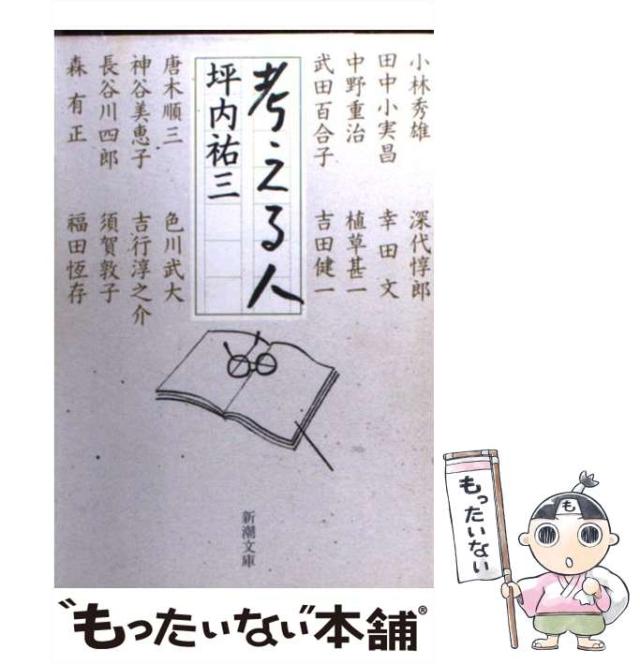 小林秀雄
田中小実昌
中野重治
武田百合子
深代惇郎
幸田文
植草甚一
吉田健一
考える人
坪内祐三
唐木順三
神谷美恵子
長谷川四郎
森有正
色川武大
吉行淳之介
須賀敦子
福田恆存
新潮文庫
"もったいない"本舗®
もったいない
も